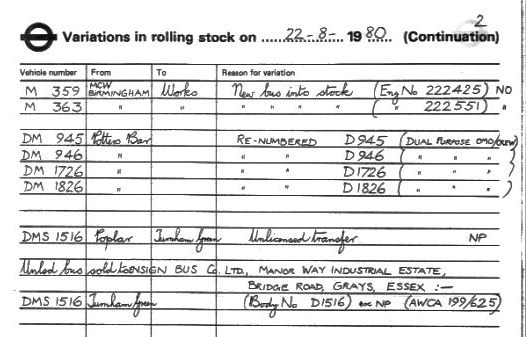 2
Variations in rolling stock on ......22-8-... 1980.. (Continuation)
Vehicle number From To Reason for variation
M 359 MCW BIRMINGHAM Works New bus into stock (Eng No 222425) NO
M 363 " " " " " " ( " 222551) "
DM 945 Potters Bar RE-NUMBERED D945 (DUAL PURPOSE OMO/CREW)
DM 946 " " " D946 ( " " " )
DM 1726 " " " D1726 ( " " " )
DM 1826 " " " D1826 ( " " " )
DMS 1516 Poplar Turnham Green Unlicensed transfer NP
Unlcd bus sold to ENSIGN BUS Co. LTD., MANOR WAY INDUSTRIAL ESTATE,
BRIDGE ROAD, GRAYS, ESSEX :—
DMS 1516 Turnham Green (Body No D1516) ex NP (AWCA 199/625)